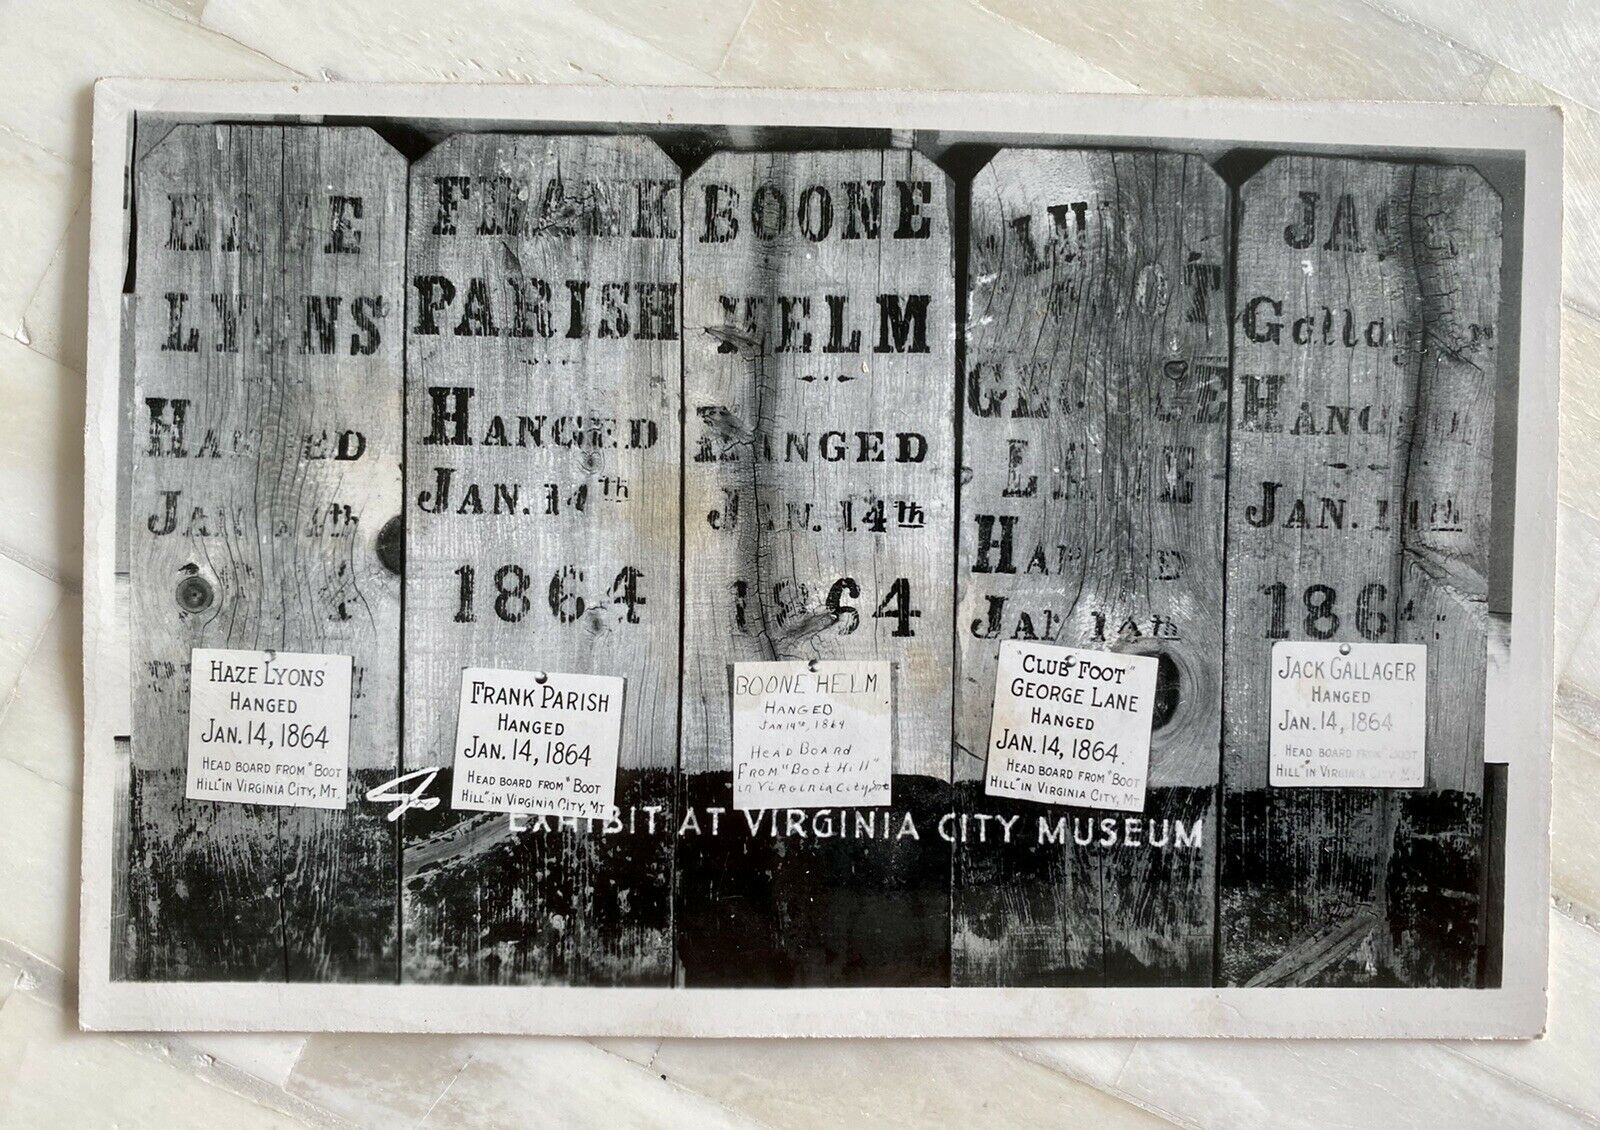 LYONS
FRANK
PARISH
HANGED
JAN. 14th
1864
BOONE
HELM
HANGED
JAN. 14th
1864
GEORGE
LANE
HANGED
JAN 14th
JACK
Gallager
HANGED
JAN. 14th
1864
HAZE LYONS
HANGED
JAN. 14, 1864
HEAD BOARD FROM "BOOT
HILL" IN VIRGINIA CITY, MT.
FRANK PARISH
HANGED
JAN. 14, 1864
HEAD BOARD FROM "BOOT
HILL" IN VIRGINIA CITY, MT.
BOONE HELM
HANGED
JAN 14TH, 1864
HEAD BOARD
FROM "BOOT HILL"
IN VIRGINIA CITY, Mt
"CLUB FOOT"
GEORGE LANE
HANGED
JAN. 14, 1864.
HEAD BOARD FROM "BOOT
HILL" IN VIRGINIA CITY, MT.
JACK GALLAGER
HANGED
JAN. 14, 1864
HEAD BOARD FROM "BOOT
HILL" IN VIRGINIA CITY, MT.
EXHIBIT AT VIRGINIA CITY MUSEUM